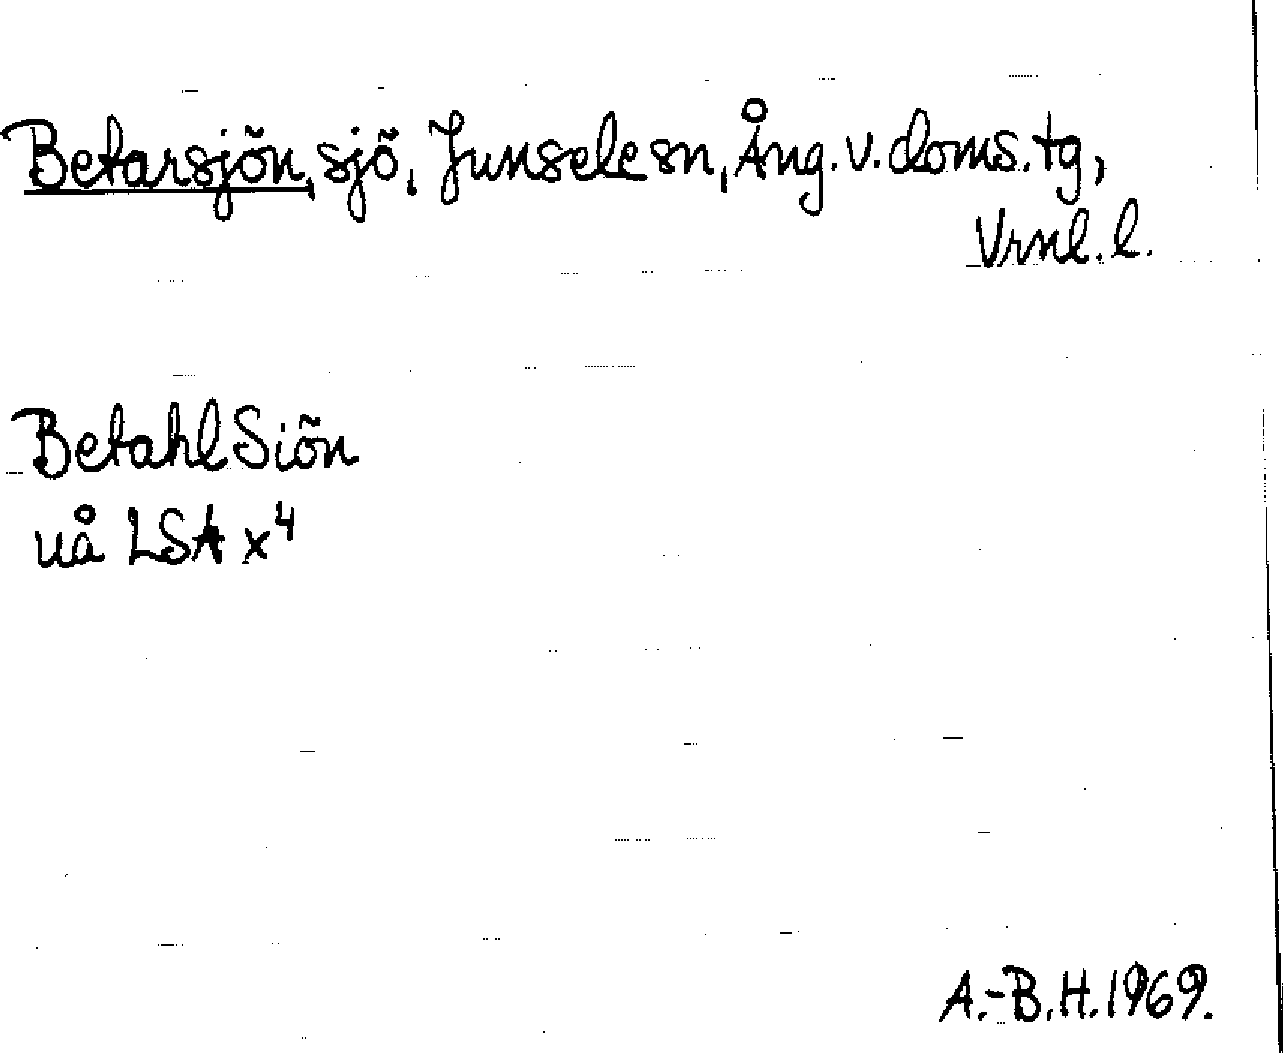 Betarsjön, sjö, Junsele sn, Ång. v. doms. tg,
Vrnl. l.
Betahl Siön
uå LSA x⁴
A.-B.H. 1969.